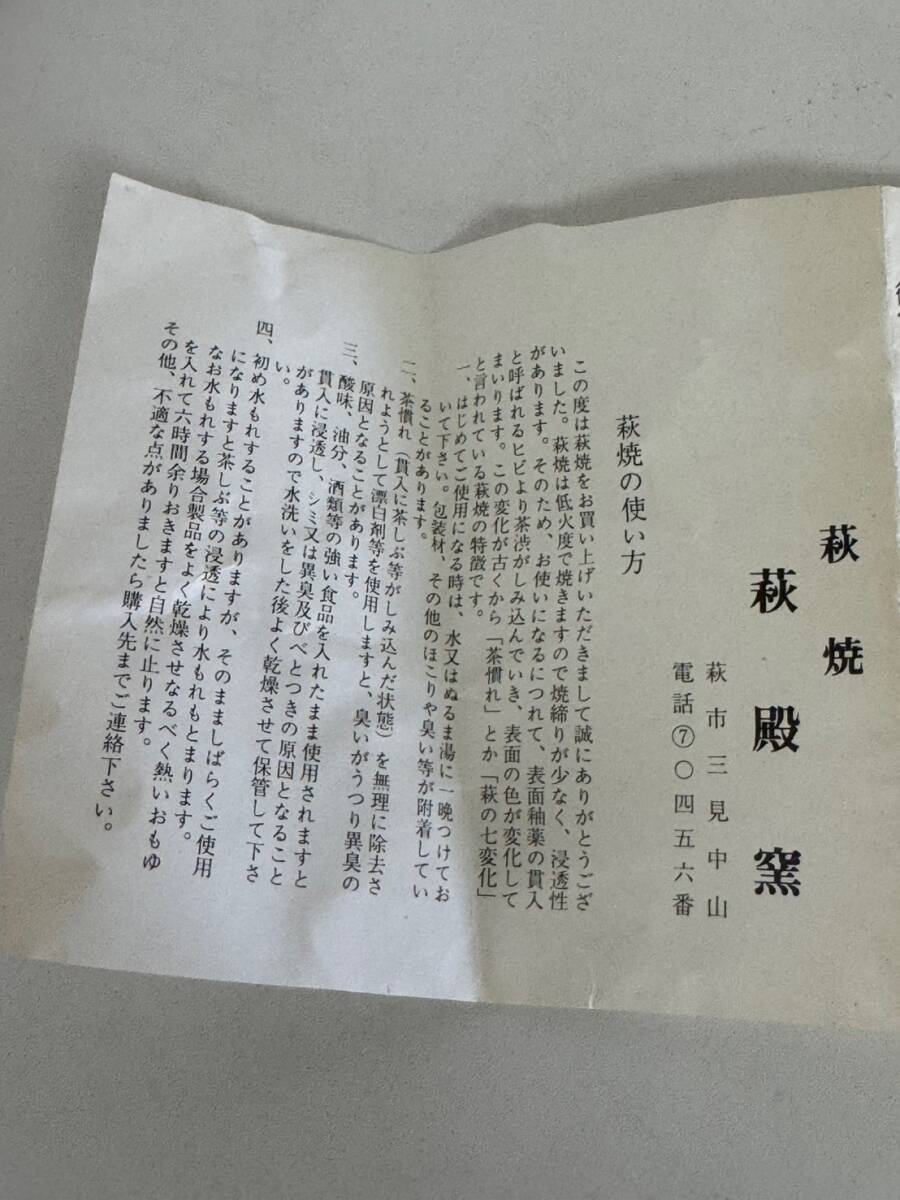 萩焼
萩殿窯
萩市三見中山
電話⑦〇四五六番
萩焼の使い方
この度は萩焼をお買い上げいただきまして誠にありがとうござ
いました。萩焼は低火度で焼きますので焼締りが少なく、浸透性
があります。そのため、お使いになるにつれて、表面釉薬の貫入
と呼ばれるヒビより茶渋がしみ込んでいき、表面の色が変化して
まいります。この変化が古くから「茶慣れ」とか「萩の七変化」
と言われている萩焼の特徴です。
一、はじめてご使用になる時は、水又はぬるま湯に一晩つけてお
いて下さい。包装材、その他のほこりや臭い等が附着してい
ることがあります。
二、茶慣れ（貫入に茶しぶ等がしみ込んだ状態）を無理に除去さ
れようとして漂白剤等を使用しますと、臭いがうつり異臭の
原因となることがあります。
三、酸味、油分、酒類等の強い食品を入れたまま使用されますと
貫入に浸透し、シミ又は異臭及びべとつきの原因となること
がありますので水洗いをした後よく乾燥させて保管して下さ
い。
四、初め水もれすることがありますが、そのまましばらくご使用
になりますと茶しぶ等の浸透により水もれもとまります。
なお水もれする場合製品をよく乾燥させなるべく熱いおもゆ
を入れて六時間余りおきますと自然に止ります。
その他、不適な点がありましたら購入先までご連絡下さい。